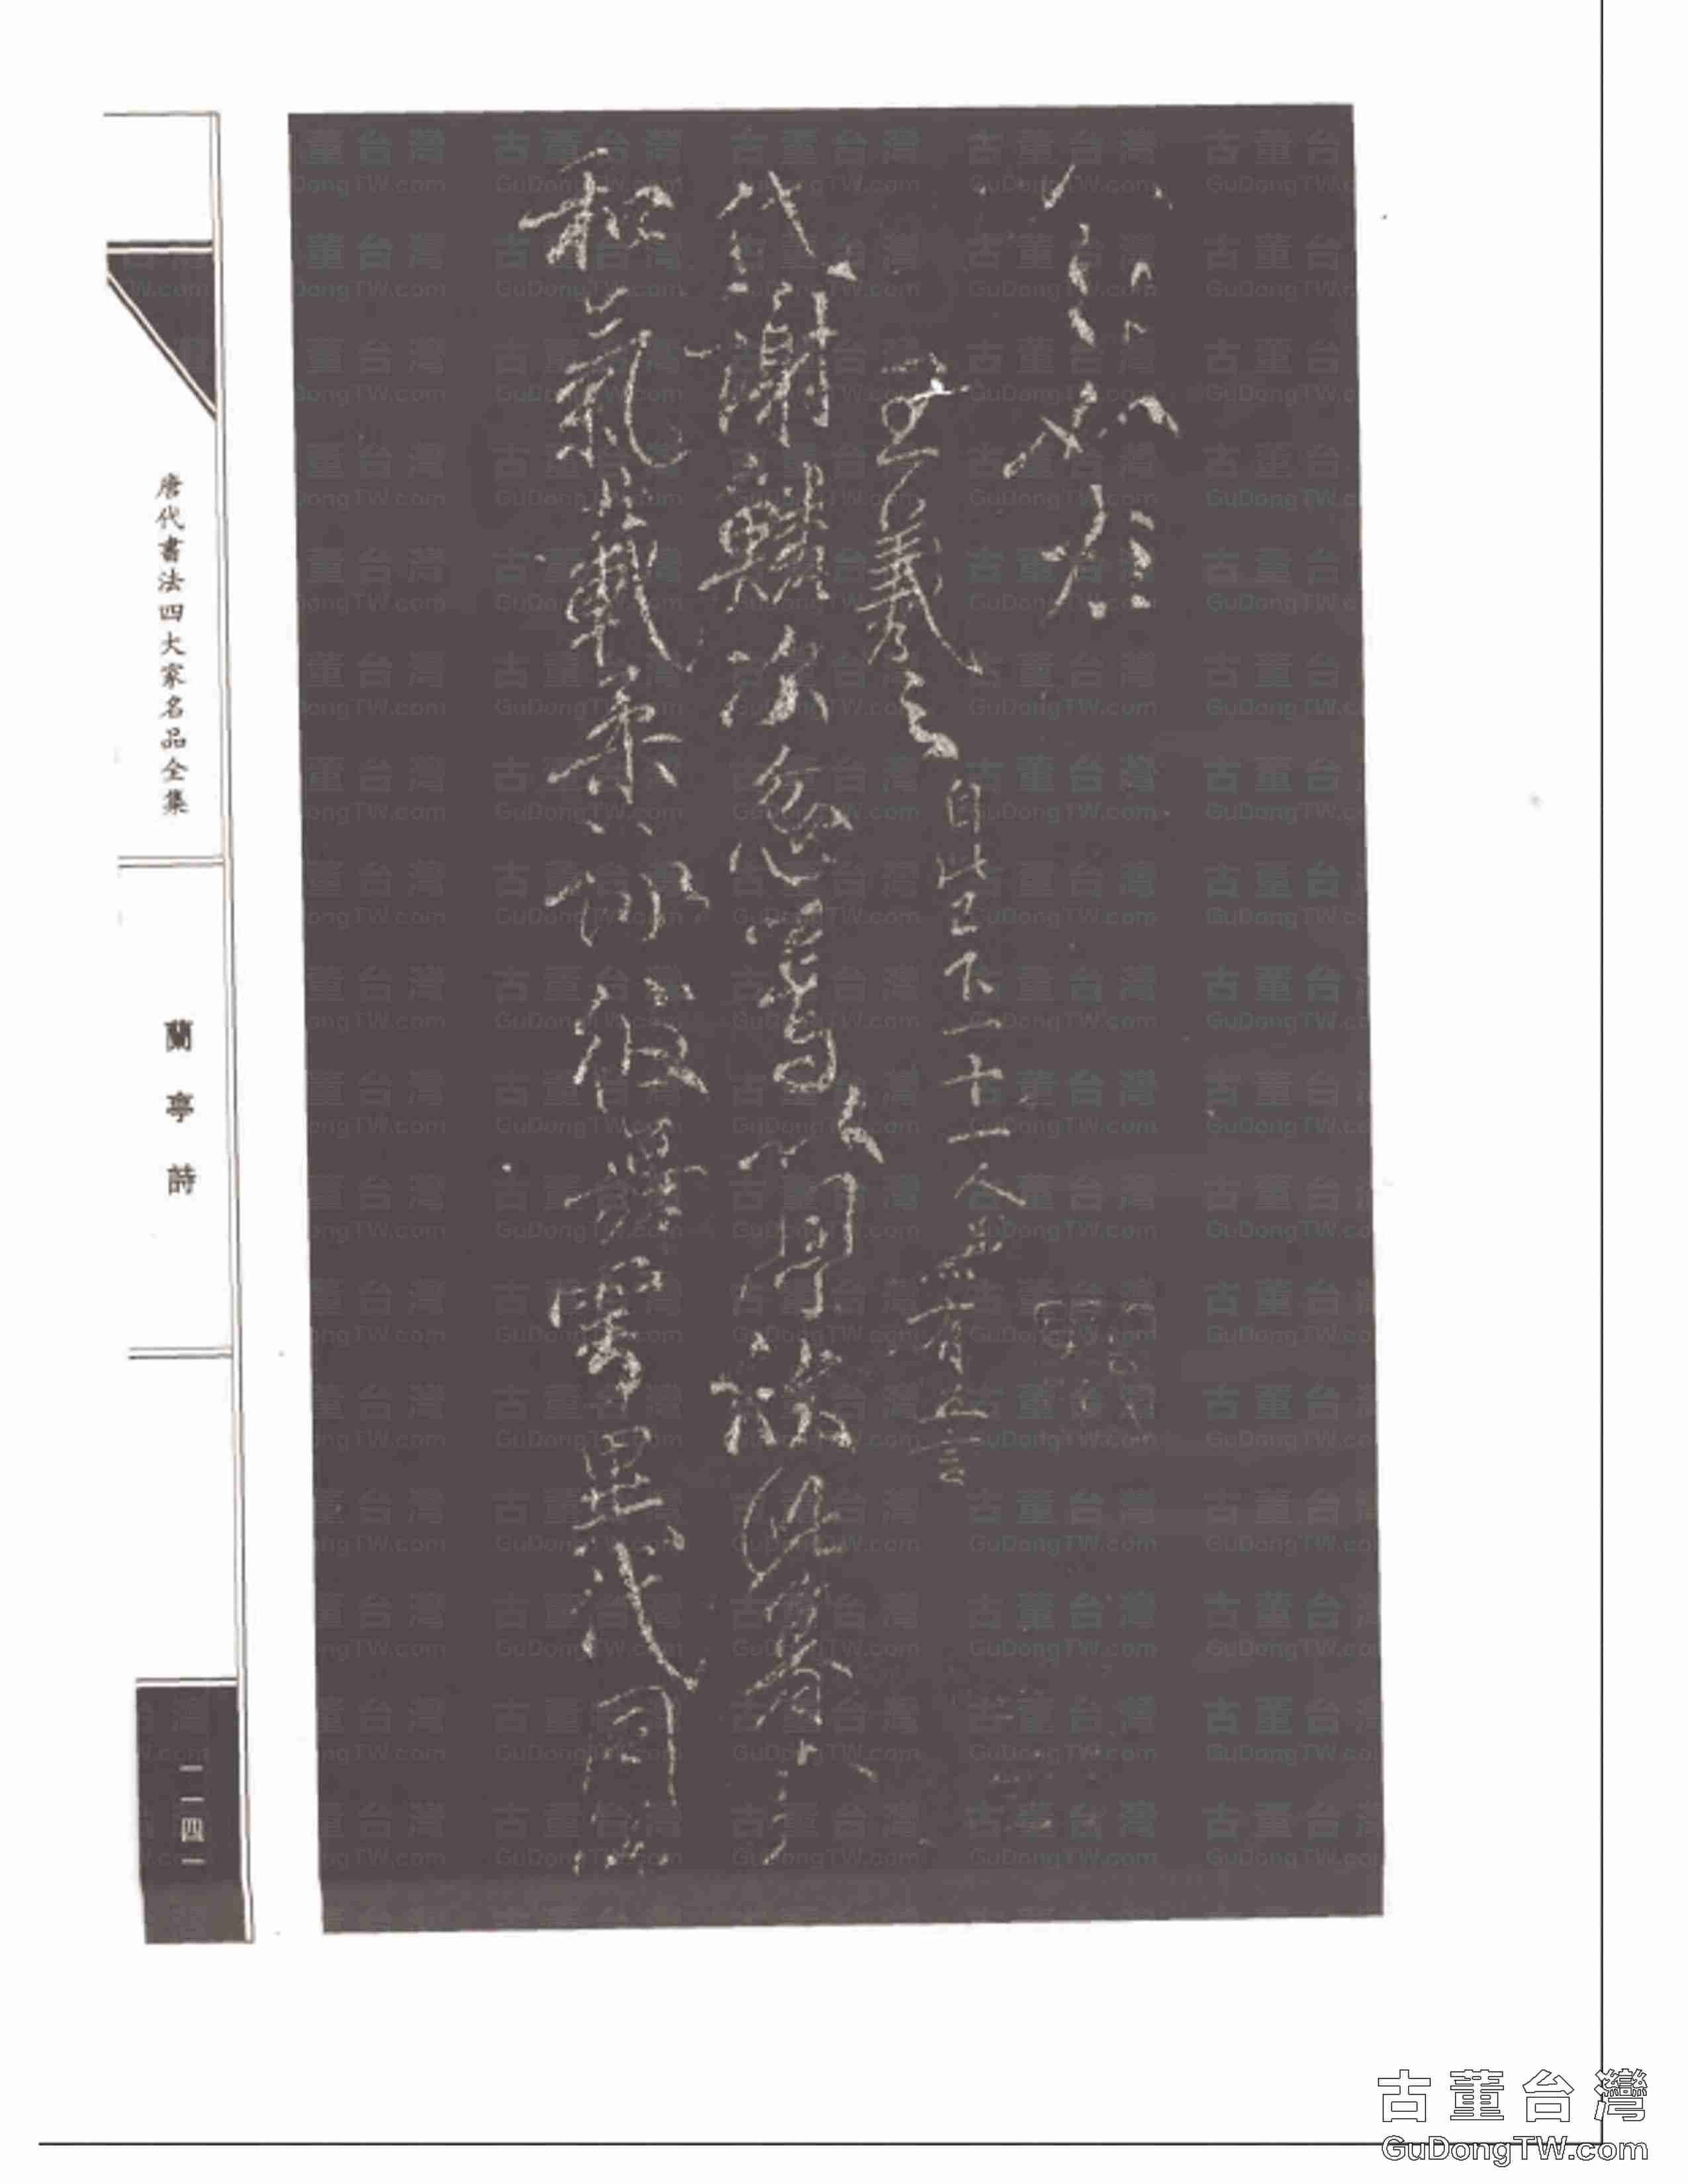 如左
王羲之 自此已下一十一人並有五言
代謝鱗次忽焉以周欣此暮春
和氣載柔詠彼舞雩異代同流
唐代書法四大家名品全集
蘭亭詩
一一四一
古董台灣
GuDongTW.com